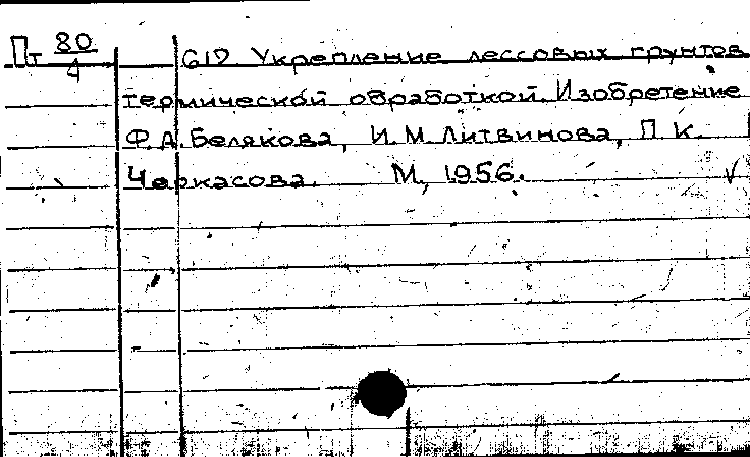 Пт 80/4 617 Укрепление лессовых грунтов
термической обработкой. Изобретение
Ф.А. Белякова, И.М. Литвинова, П.К.
Черкасова. М, 1956. √